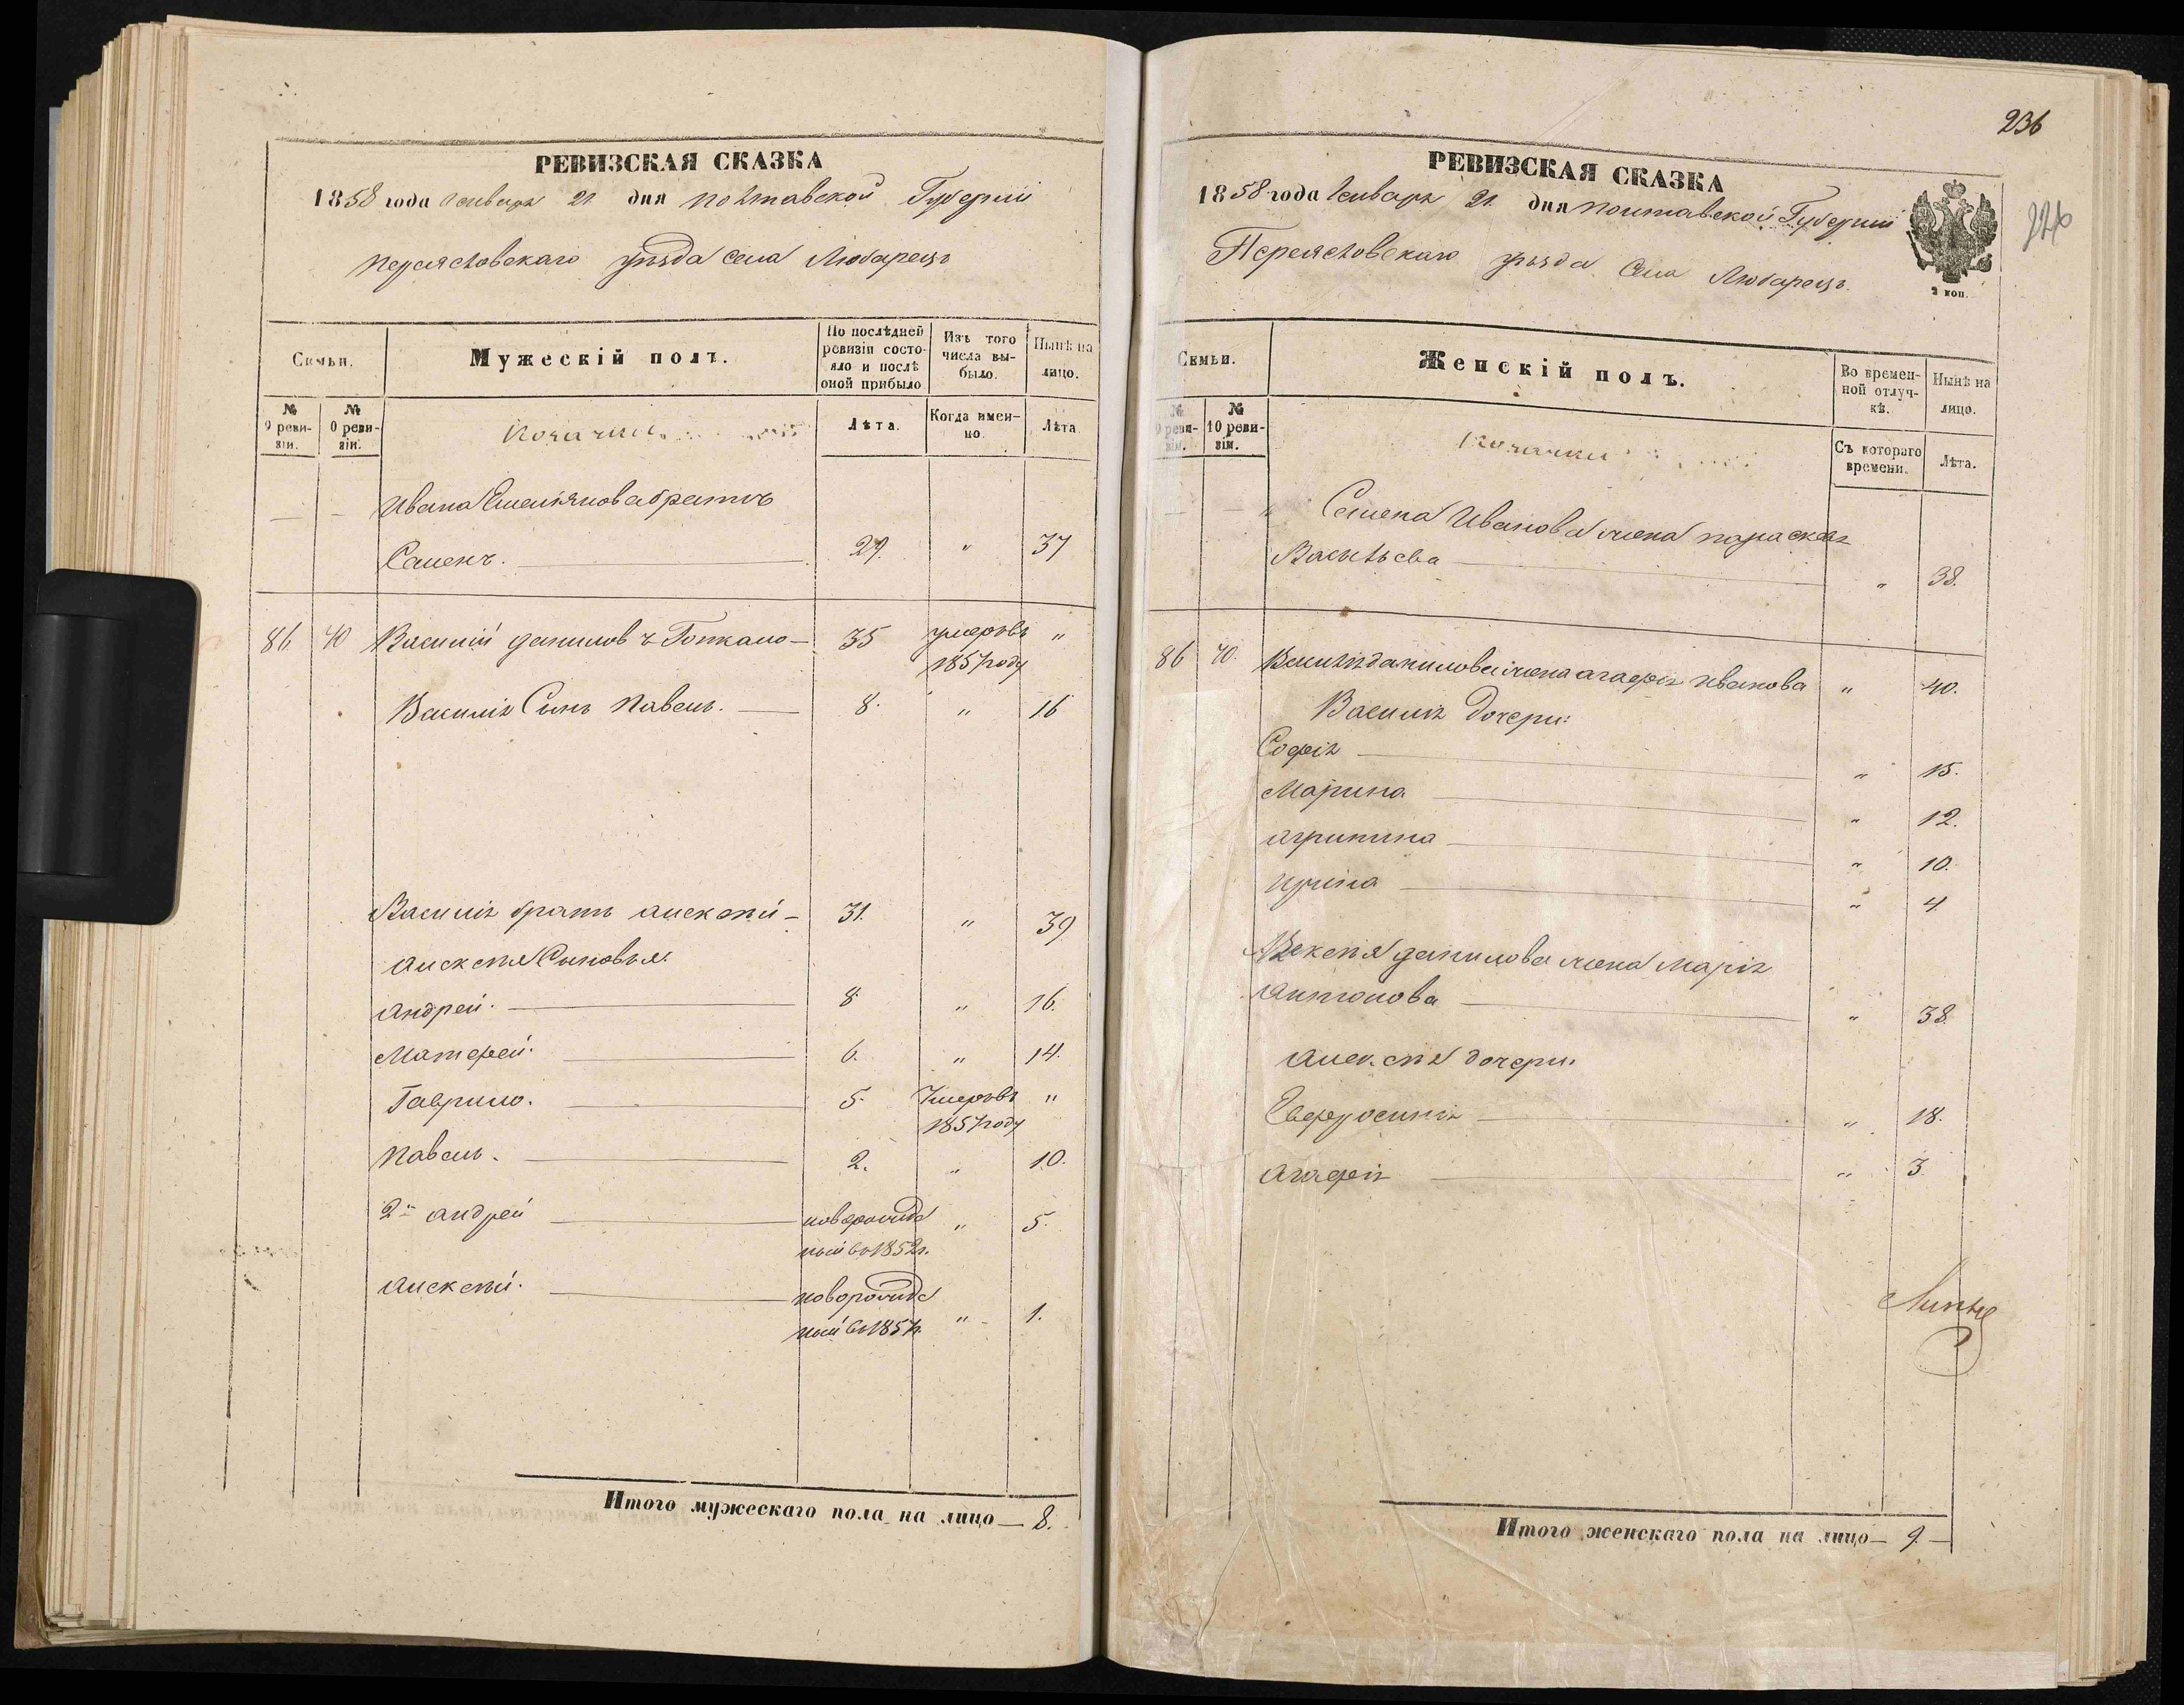 РЕВИЗСКАЯ СКАЗКА
1858 года Января 21 дня Полтавской Губерніи
Переясловскаго уѣзда села Любарецъ
Семьи.
Мужескій полъ.
По послѣдней ревизіи состояло и послѣ оной прибыло
Изъ того числа выбыло.
Нынѣ на лицо.
№ 9 ревизіи.
№ 10 ревизіи.
Козачки
Лѣта.
Когда именно.
Лѣта.
— — Ивана Емельянова братъ
Семенъ. — 29. " 37
86 40 Василій Даниловъ — 35 умеръ въ "
1857 году
Василія Сынъ Павелъ. — 8. " 16
Василія братъ Алексѣй — 31. " 39
Алексѣя Сыновья:
Андрей. — 8 " 16.
Матфей. — 6. " 14.
Гаврило. — 5. Умеръ въ "
1857 году
Павелъ. — 2. " 10.
2й Андрей — новорожд " 5.
ный въ 1852 г.
Алексѣй. — новорожд
ный въ 1857 г. " 1.
Итого мужескаго пола на лицо — 8.
236
РЕВИЗСКАЯ СКАЗКА
1858 года Января 21 дня Полтавской Губерніи
Переясловскаго уѣзда Села Любарецъ
2 коп.
Семьи.
Женскій полъ.
Во временной отлучкѣ.
Нынѣ на лицо.
№ 9 ревизіи.
№ 10 ревизіи.
Козачки
Съ котораго времени.
Лѣта.
— — " Семена Иванова жена Параскева
Васильева — " 38.
86 40. Василія Данилова жена Агафія Иванова " 40.
Василія дочери:
Софія — " 15.
Марина — " 12.
Агрипина — " 10.
Ирина — " 4
Алексѣя Данилова жена Марія
Антонова — " 38.
Алексѣя дочери:
Евфросинія — " 18.
Агафія — " 3.
Итого женскаго пола на лицо — 9. —